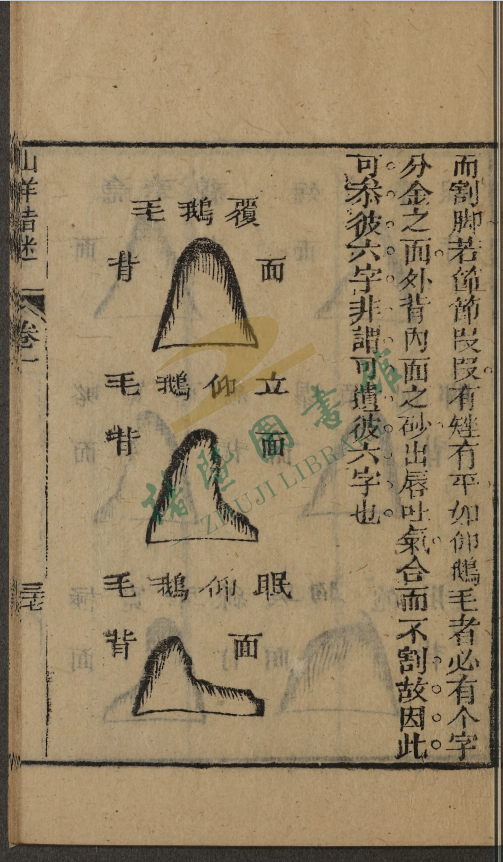 而割脚若節節叚叚有矬有平如仰鵝毛者必有个字
分金之面外背內面之砂出唇吐氣合而不割故因此
可忝彼六字非謂可遺彼六字也
覆鵝毛
面
背
立仰鵝毛
面
背
眠仰鵝毛
面
背
山洋指迷
卷一
三七
諸暨圖書館
ZHUJI LIBRARY